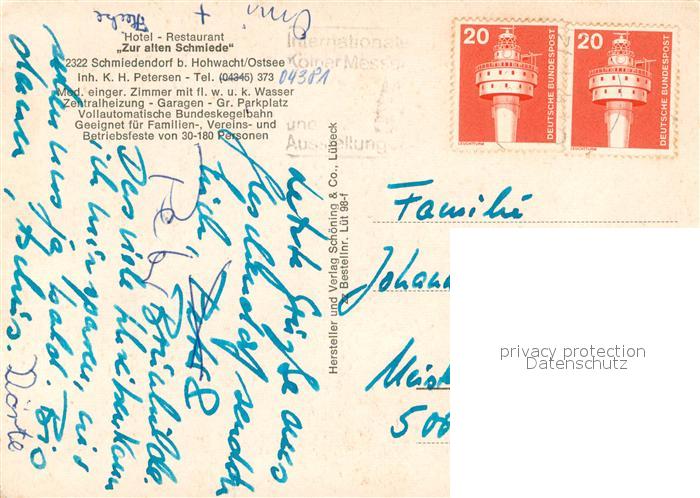 Omi
Heike +
Hotel - Restaurant
„Zur alten Schmiede“
2322 Schmiedendorf b. Hohwacht/Ostsee
Inh. K. H. Petersen - Tel. (04345) 373 04381
Med. einger. Zimmer mit fl. w. u. k. Wasser
Zentralheizung - Garagen - Gr. Parkplatz
Vollautomatische Bundeskegelbahn
Geeignet für Familien-, Vereins- und
Betriebsfeste von 30-180 Personen
Internationale
Kölner Messe
und
Ausstellung
20
DEUTSCHE BUNDESPOST
LEUCHTTURM
20
DEUTSCHE BUNDESPOST
LEUCHTTURM
Hersteller und Verlag Schöning & Co., Lübeck
Bestellnr. Lüt 98-f
Letzte Grüße aus
sendet
Euch
Das viele schreiben kann
ich mir sparen, wir
sehen uns ja bald. Bis
dann, tschüss. Dörte
Familie
Johann
500
privacy protection
Datenschutz